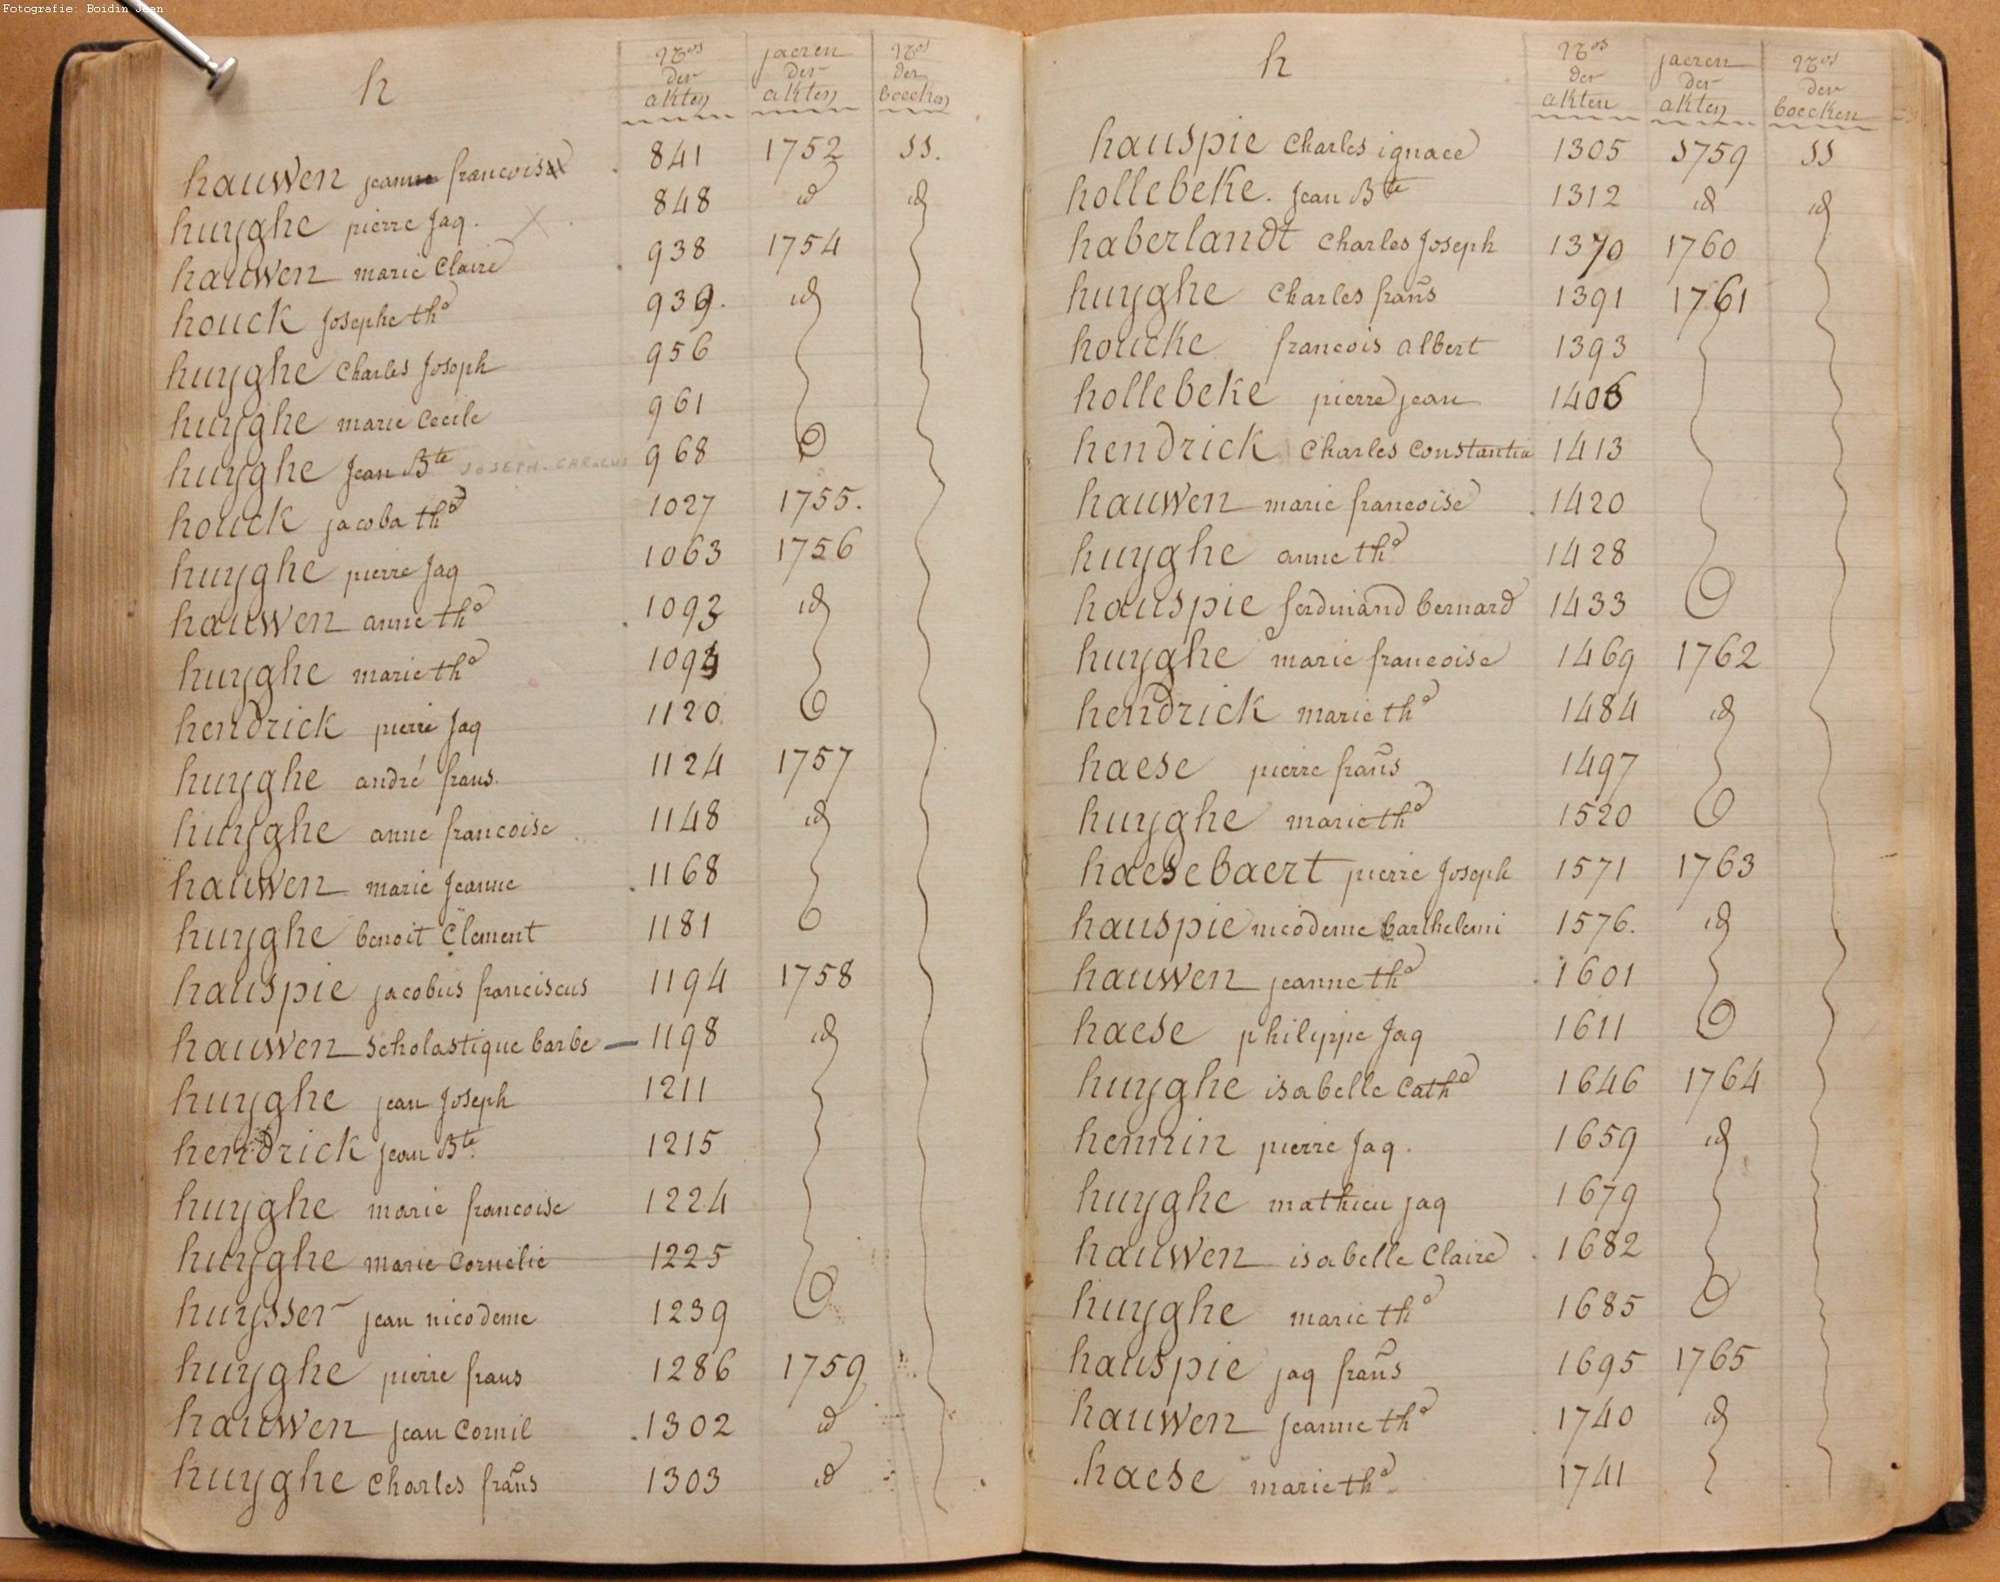 Fotografie: Boidin Jean
h
Nos der akten
jaeren der akten
Nos der boecken
hauwen jeanne francoise 841 1752 SS.
huyghe pierre Jaq. 848 id id
hauwen marie Claire 938 1754
houck Josephe tha 939. id
huyghe Charles Joseph 956
huyghe marie Cecile 961
huyghe Jean Bte JOSEPH-CAROLUS 968
houck jacoba tha 1027 1755.
huyghe pierre Jaq 1063 1756
hauwen anne tha 1093 id
huyghe marie tha 1094
hendrick pierre Jaq 1120
huyghe andré frans. 1124 1757
huyghe anne francoise 1148 id
hauwen marie Jeanne 1168
huyghe benoit Clement 1181
hauspie jacobus franciscus 1194 1758
hauwen scholastique barbe — 1198 id
huyghe jean Joseph 1211
hendrick jean Bte 1215
huyghe marie francoise 1224
huyghe marie Cornelie 1225
huysser jean nicodeme 1239
huyghe pierre frans 1286 1759
hauwen jean Cornil 1302 id
huyghe Charles frans 1303 id
h
Nos der akten
jaeren der akten
Nos der boecken
hauspie Charles ignace 1305 1759 SS
hollebeke. Jean Bte 1312 id id
haberlandt Charles Joseph 1370 1760
huyghe Charles frans 1391 1761
houcke francois albert 1393
hollebeke pierre jean 1406
hendrick Charles Constantin 1413
hauwen marie francoise 1420
huyghe anne tha 1428
hauspie ferdinand bernard 1433
huyghe marie francoise 1469 1762
hendrick marie tha 1484 id
haese pierre frans 1497
huyghe marie tha 1520
haesebaert pierre Joseph 1571 1763
hauspie nicodeme barthelemi 1576. id
hauwen jeanne tha 1601
haese philippe Jaq 1611
huyghe isabelle Catha 1646 1764
hennin pierre Jaq. 1659 id
huyghe mathieu jaq 1679
hauwen isabelle Claire 1682
huyghe marie tha 1685
hauspie jaq frans 1695 1765
hauwen jeanne tha 1740 id
haese marie tha 1741